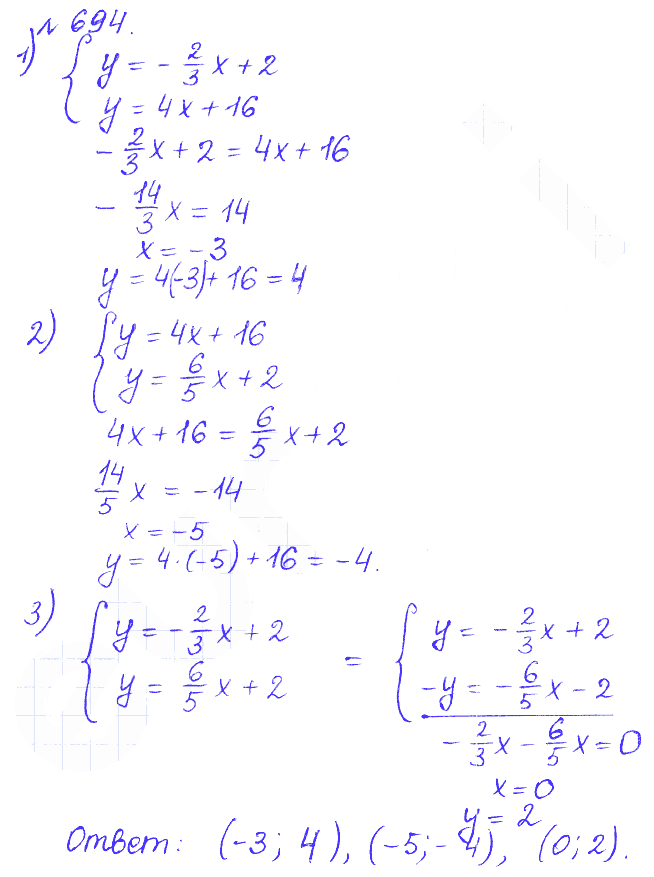 № 694.
1) { y = - 2/3 x + 2
y = 4x + 16
- 2/3 x + 2 = 4x + 16
- 14/3 x = 14
x = -3
y = 4(-3) + 16 = 4
2) { y = 4x + 16
y = 6/5 x + 2
4x + 16 = 6/5 x + 2
14/5 x = -14
x = -5
y = 4·(-5) + 16 = -4.
3) { y = - 2/3 x + 2 = { y = - 2/3 x + 2
y = 6/5 x + 2 -y = - 6/5 x - 2
- 2/3 x - 6/5 x = 0
x = 0
y = 2
Ответ: (-3; 4), (-5; -4), (0; 2).